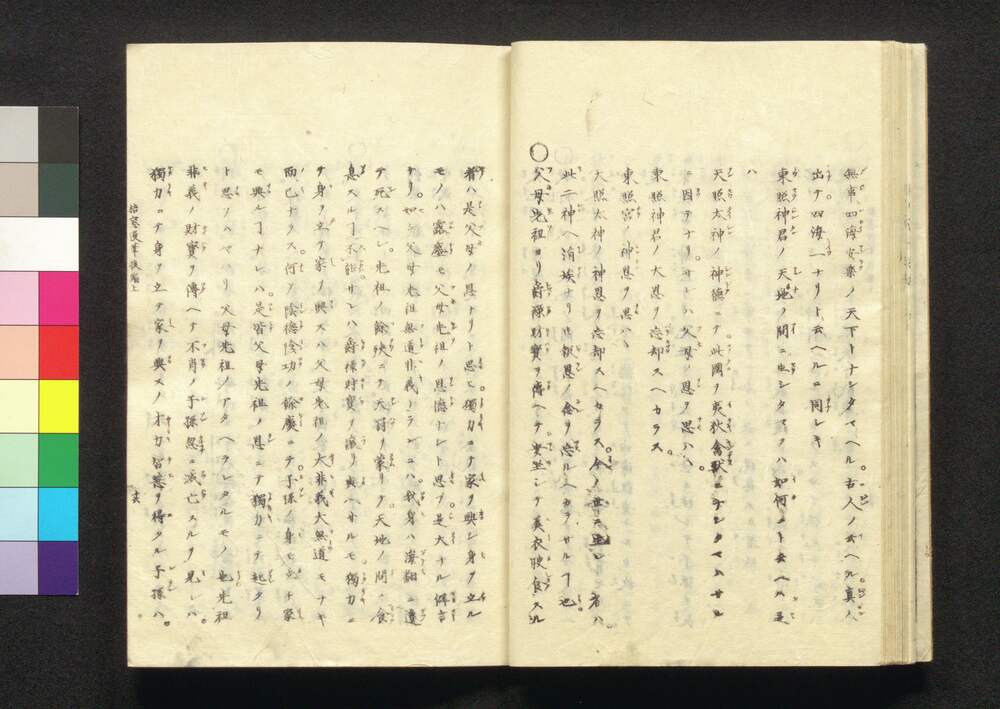 無事四海安楽ノ天下トナシタマヘル古人ノ云ヘル真人
出テ四海一ナリト云ヘルニ同シキ
東照神君ノ天地ノ間ニ出シタマフハ如何ニト云ヘハ是
ハ
天照太神ノ神徳ニテ此國ヲ夷狄禽獣ニナシタマハサル
ニ因テナリサレハ父母ノ恩ヲ思ハヽ
東照神君ノ大恩ヲ忘却スヘカラス
東照宮ノ神恩ヲ思ハヽ
天照太神ノ神恩ヲ忘却スヘカラス今ノ世ニ出シ者ハ
此二神ヘ報恩ノ念ヲ忘ルヘカラサルヿ也
○父母先祖ヨリ爵禄財寶ヲ傳ヘテ安坐シテ美衣腴食スル
者ハ是父母ノ恩ナリト思ヒ獨力ニテ家ヲ興シ身ヲ立ル
モノハ露塵モ父母先祖ノ恩徳ナシト思フ是大ナル僻言
ナリ如父母先祖無道非義ナランニハ我身ハ溝壑ニ
テ死スヘシ先祖ノ餘殃ニテ天罰ヲ蒙リテ天地ノ間ニ食
息スルヿ不能サレハ爵禄財寶ヲ譲リ與ヘサルモ獨力ニ
テ身ヲ立テ家ヲ興スハ父母先祖ノ大非義大無道モナキ
而已ナラス何ソ陰徳陰功ノ餘慶ニテ子孫ノ身モ立チ家
モ興ルヿナレハ是皆父母先祖ノ恩ニテ獨力ニテ起タリ
ト思フハアヤマリ父母先祖ノアタヘラレタルモノ也先祖
非義ノ財寶ヲ傳ヘテ不肖ノ子孫忽ニ滅亡スルヲ見レハ
獨力ニテ身ヲ立テ家ヲ興スノ才力智慧ヲ得タル子孫ハ